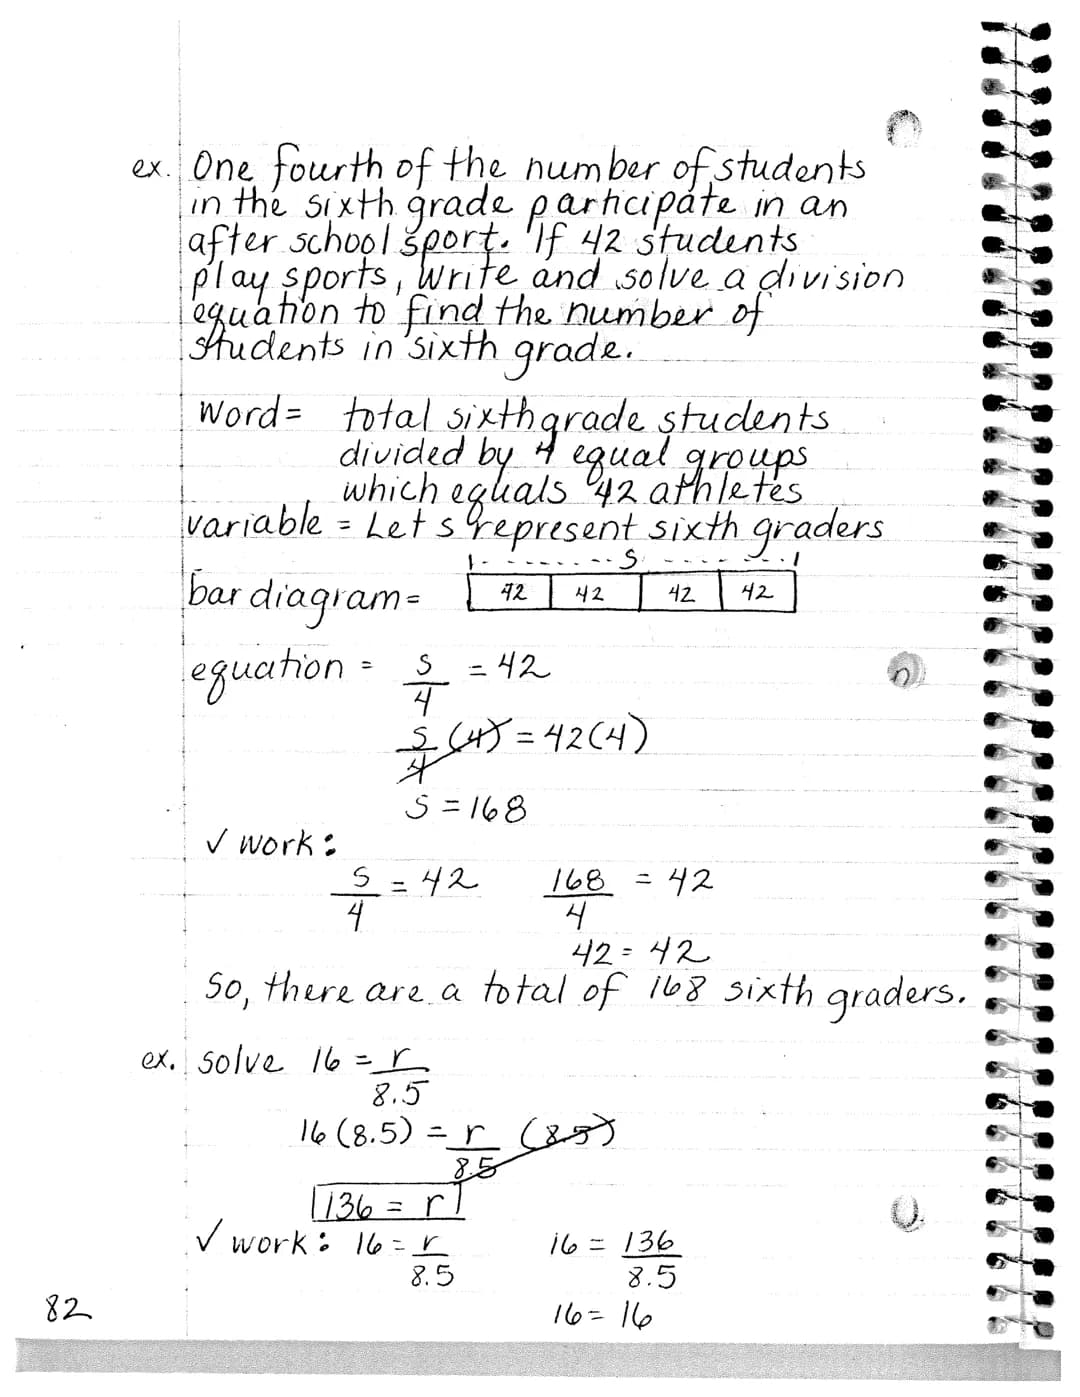 ex. One fourth of the number of students
in the sixth grade participate in an
after school sport. If 42 students
play sports, write and solve a division
equation to find the number of
students in sixth grade.
word = total sixth grade students
divided by 4 equal groups
which equals 42 athletes
variable = Let s represent sixth graders
s
bar diagram = 42 42 42 42
equation = s/4 = 42
s/4 (4) = 42(4)
s = 168
✓ work:
s/4 = 42 168/4 = 42
42 = 42
So, there are a total of 168 sixth graders.
ex. solve 16 = r/8.5
16 (8.5) = r/8.5 (8.5)
136 = r
✓ work: 16 = r/8.5 16 = 136/8.5
16 = 16
82